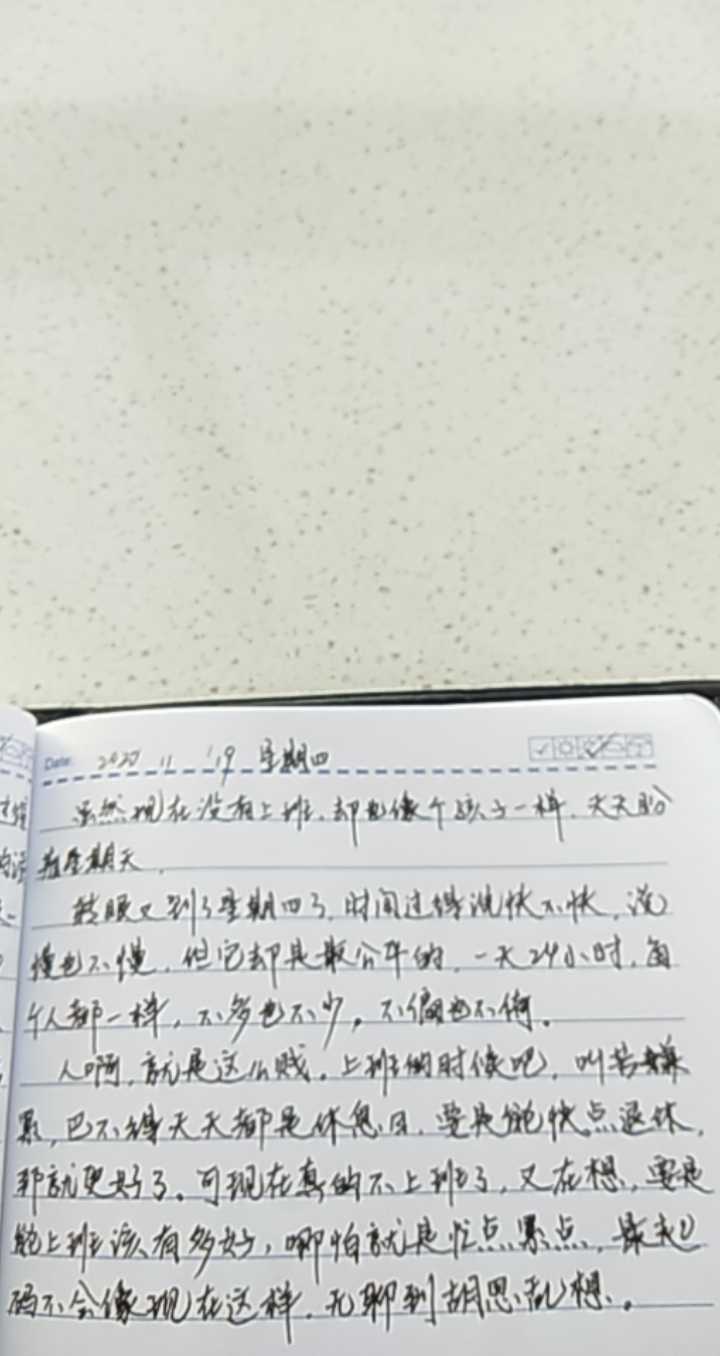 Date: 2020 11 19 星期四
虽然现在没有上班,却也像个孩子一样,天天盼
着星期天,
转眼又到了星期四了,时间过得说快不快,说
慢也不慢,但它却是最公平的,一天24小时,每
个人都一样,不多也不少,不偏也不倚。
人啊,就是这么贱,上班的时候吧,叫苦嫌
累,巴不得天天都是休息日,要是能快点退休,
那就更好了。可现在真的不上班了,又在想,要是
能上班该有多好,哪怕就是忙点累点,最起
码不会像现在这样,无聊到胡思乱想。